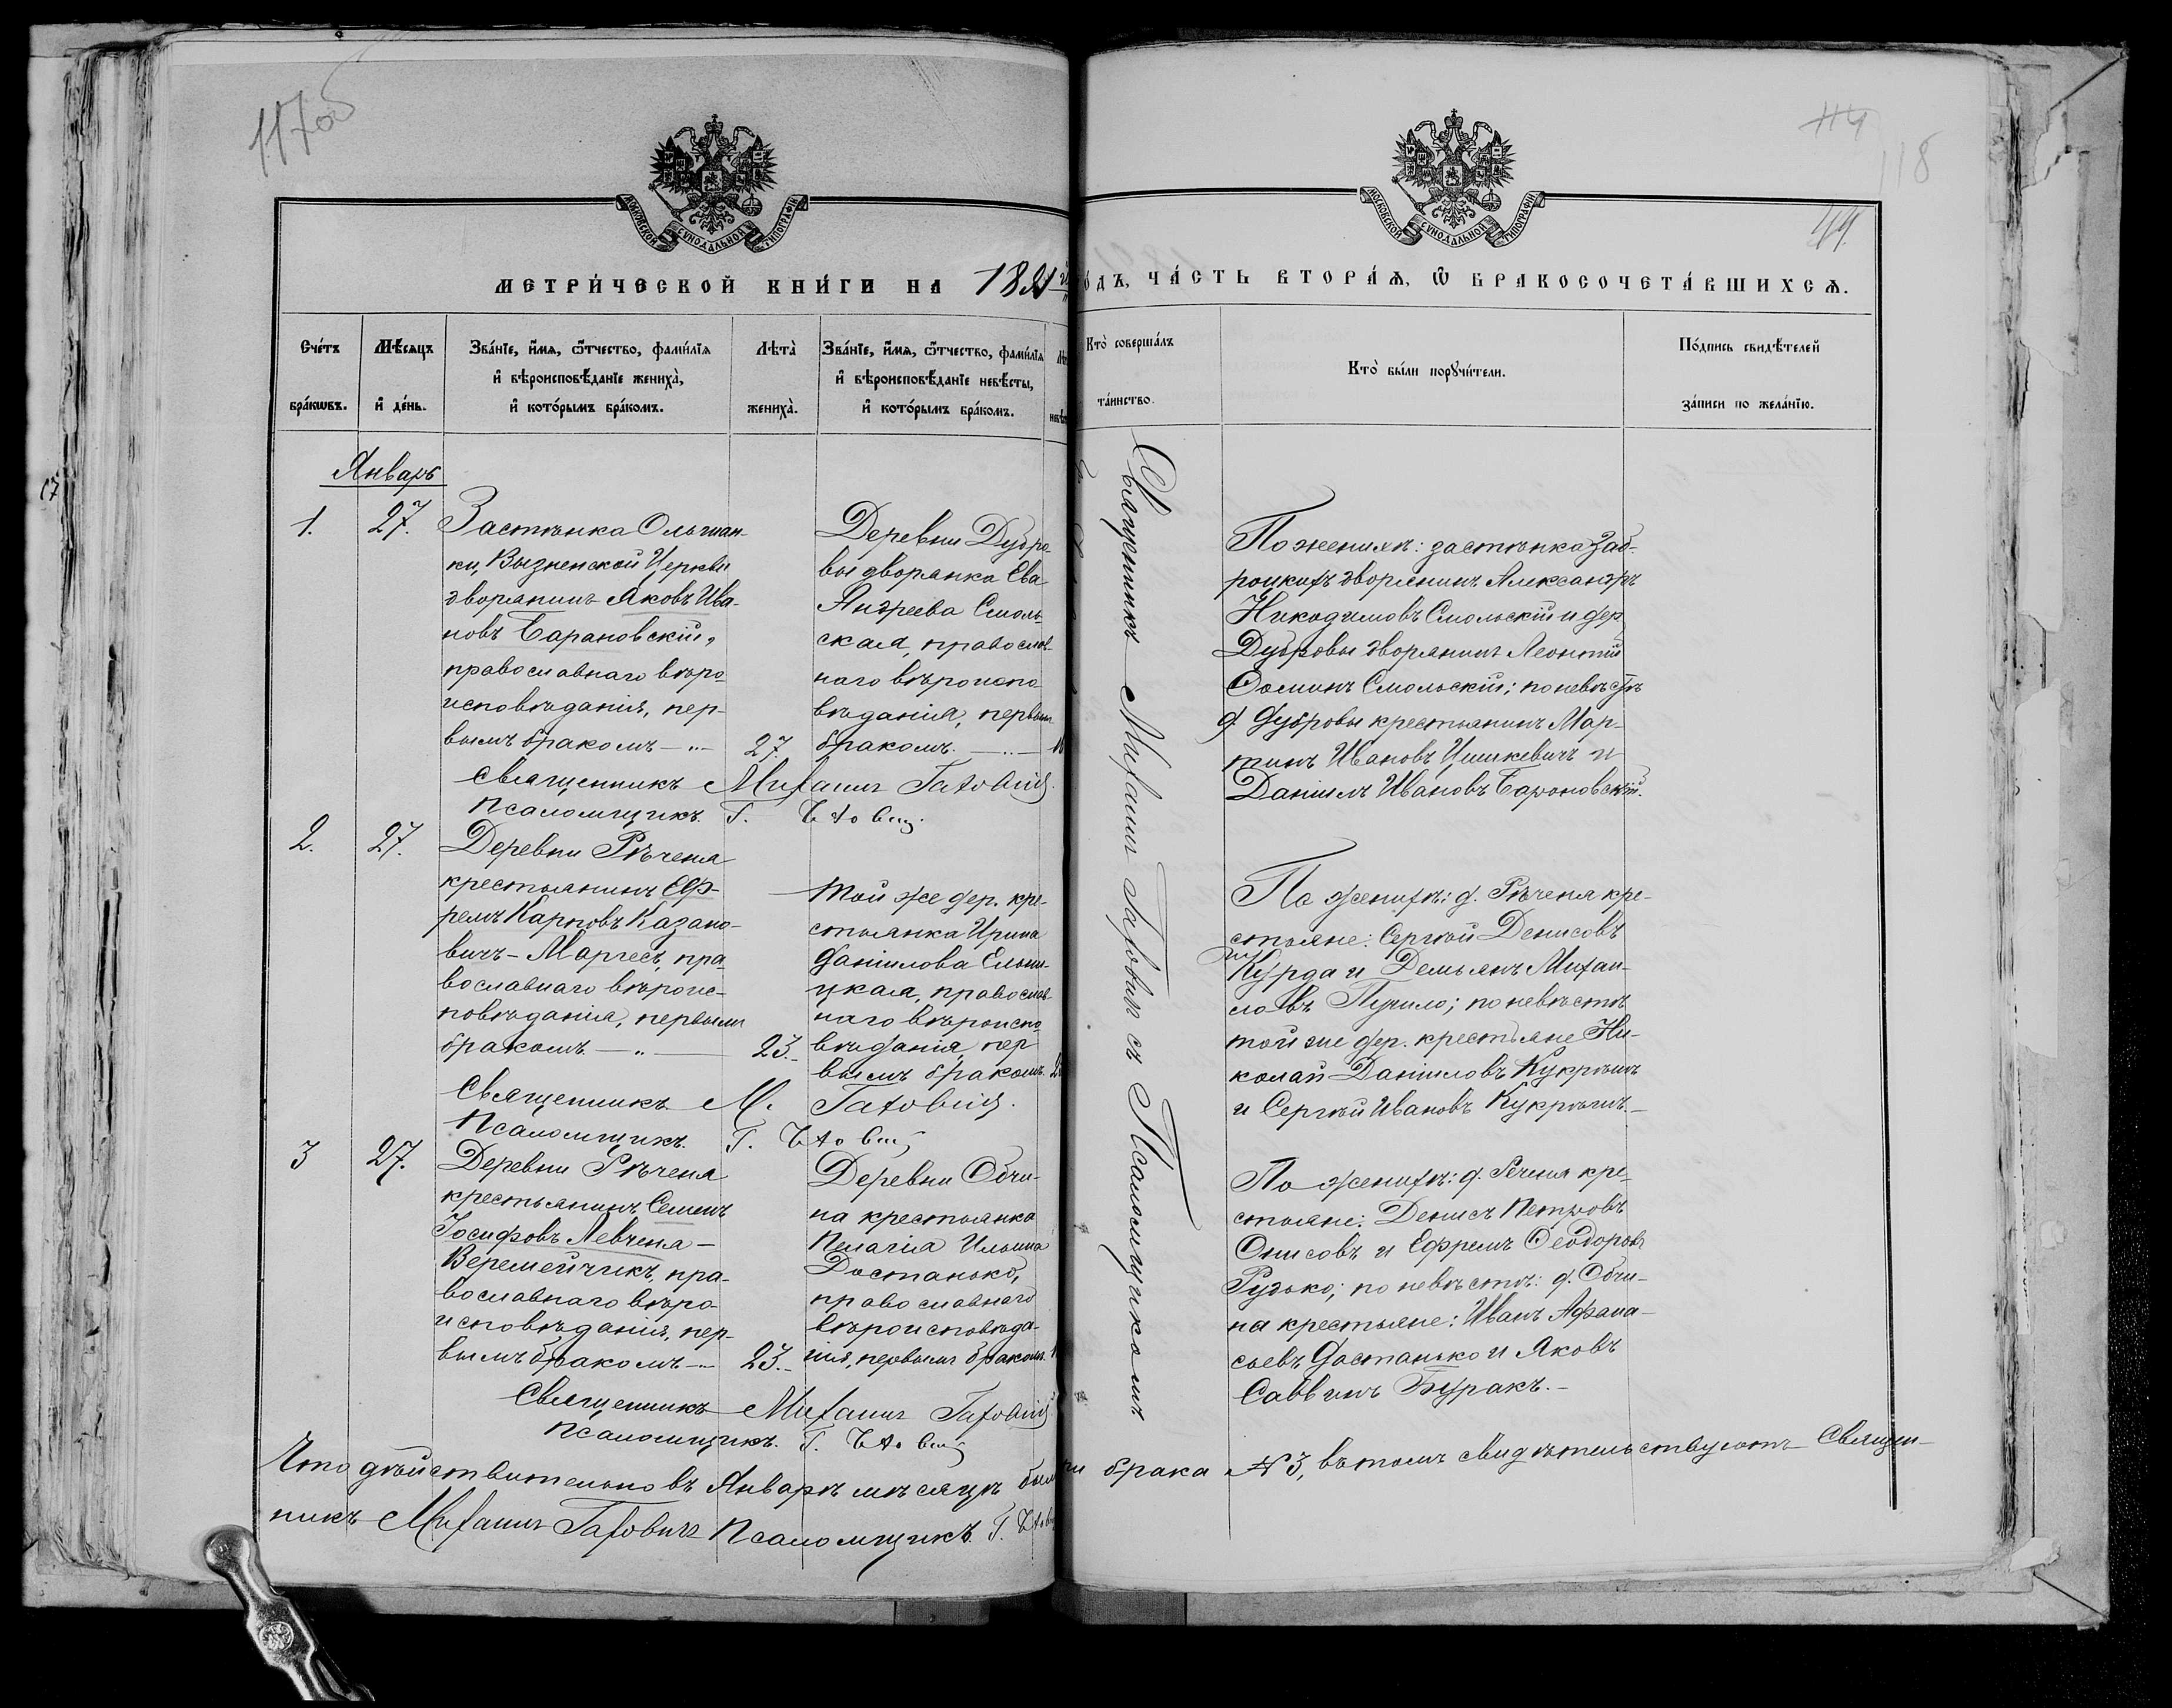 117об
118
МОСКОВСКОЙ СУНОДАЛЬНОЙ ТИПОГРАФІИ
МОСКОВСКОЙ СУНОДАЛЬНОЙ ТИПОГРАФІИ
МЕТРИ́ЧЕСКОЙ КНИ́ГИ НА 1891й
О́ДЪ, ЧА́СТЬ ВТОРА́Ѧ, Ѿ БРАКОСОЧЕТА́ВШИХСѦ.
Сче́тъ бра́кѡвъ.
Мѣ́сяцъ и҆ де́нь.
Зва́нїе, и҆́мѧ, ѻ҆́тчество, фами́лїѧ и҆ вѣроисповѣ́данїе жениха̀, и҆ кото́рымъ бра́комъ.
Лѣта̀ жениха̀.
Зва́нїе, и҆́мѧ, ѻ҆́тчество, фами́лїѧ и҆ вѣроисповѣ́данїе невѣ́сты, и҆ кото́рымъ бра́комъ.
Кто̀ соверша́лъ та́инство.
Кто̀ бы́ли порꙋчи́тели.
По́дпись свидѣ́телей за́писи по жела́нїю.
Январь
1.
27.
Застѣнка Ольшан-
ки, Вызненской Церкви
дворянинъ Яковъ Ива-
новъ Барановскій,
православнаго вѣро-
исповѣданія, пер-
вымъ бракомъ —"—
27.
Деревни Дубро-
вы дворянка Ева
Андреева Смоль-
ская, православ-
наго вѣроиспо-
вѣданія, первымъ
бракомъ. —"—
Священникъ Михаилъ Гахович
Псаломщикъ. Г.
По женихѣ: застѣнка Заб-
роцкихъ дворянинъ Александръ
Никодимовъ Смольскій и дер
Дубровы дворянинъ Леонтій
Ѳоминъ Смольскій; по невѣстѣ
д. Дубровы крестьянинъ Мар-
тинъ Ивановъ Цишкевичъ и
Даніилъ Ивановъ Бароновскій.
2.
27.
Деревни Рѣченя
крестьянинъ Еф-
ремъ Карповъ Казано-
вичъ - Маргесъ, пра-
вославнаго вѣроис-
повѣданія, первымъ
бракомъ. —"—
23.
Той же дер. кре-
стьянка Ирина
Даніилова Ельни-
цкая, православ-
наго вѣроиспо-
вѣданія, пер-
вымъ бракомъ.
Священникъ М. Гахович.
Псаломщикъ. Г.
По женихѣ: д. Рѣченя кре-
стьяне: Сергѣй Денисовъ
и Демьянъ Михаи-
ловъ Пучило; по невѣстѣ
той же дер. крестьяне Ни-
колай Даніиловъ Кукрѣшъ
и Сергѣй Ивановъ Кукрѣшъ.—
3
27.
Деревни Рѣченя
крестьянинъ Семенъ
Іосифовъ Левченя—
Веремейчикъ, пра-
вославнаго вѣро-
исповѣданія, пер-
вымъ бракомъ —"—
23.
Деревни Обчи-
на крестьянка
Пелагія Ильина
Достанько,
православнаго
вѣроисповѣда-
нія, первымъ бракомъ.
Священникъ Михаилъ Гахович
Псаломщикъ. Г.
По женихѣ: д. Реченя кре-
стьяне: Денисъ Петровъ
Онисовъ и Ефремъ Ѳеодоровъ
Рудько; по невѣстѣ: д. Обчи-
на крестьяне: Иванъ Афана-
сьевъ Достанько и Яковъ
Саввинъ Буракъ.—
Священникъ Михаилъ Гаховичъ съ Псаломщикомъ
Что дѣйствительно въ Январѣ мѣсяцѣ были брака № 3, въ томъ свидѣтельствуютъ Священ-
никъ Михаилъ Гаховичъ Псаломщикъ. Г.